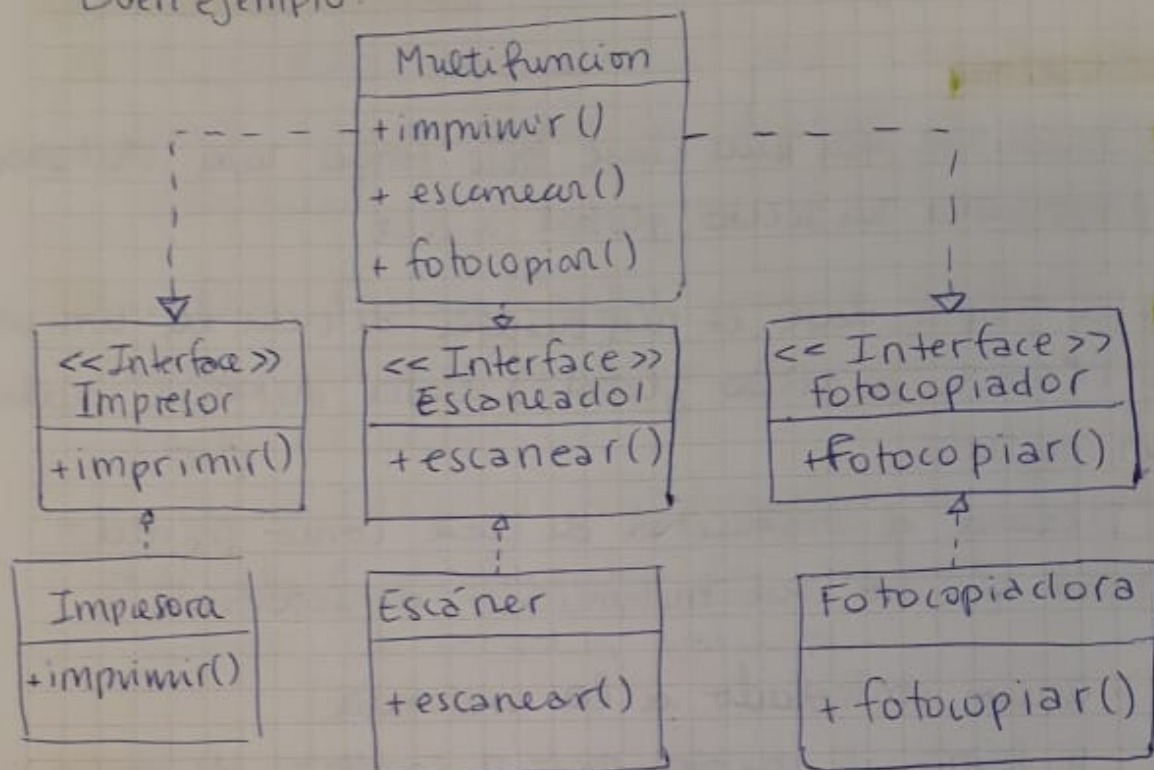 Buen ejemplo:
Multifuncion
+imprimir()
+ escanear()
+ fotocopiar()
<<Interface>>
Impresor
+imprimir()
<<Interface>>
Escaneador
+escanear()
<<Interface>>
fotocopiador
+fotocopiar()
Impresora
+imprimir()
Escáner
+escanear()
Fotocopiadora
+ fotocopiar()